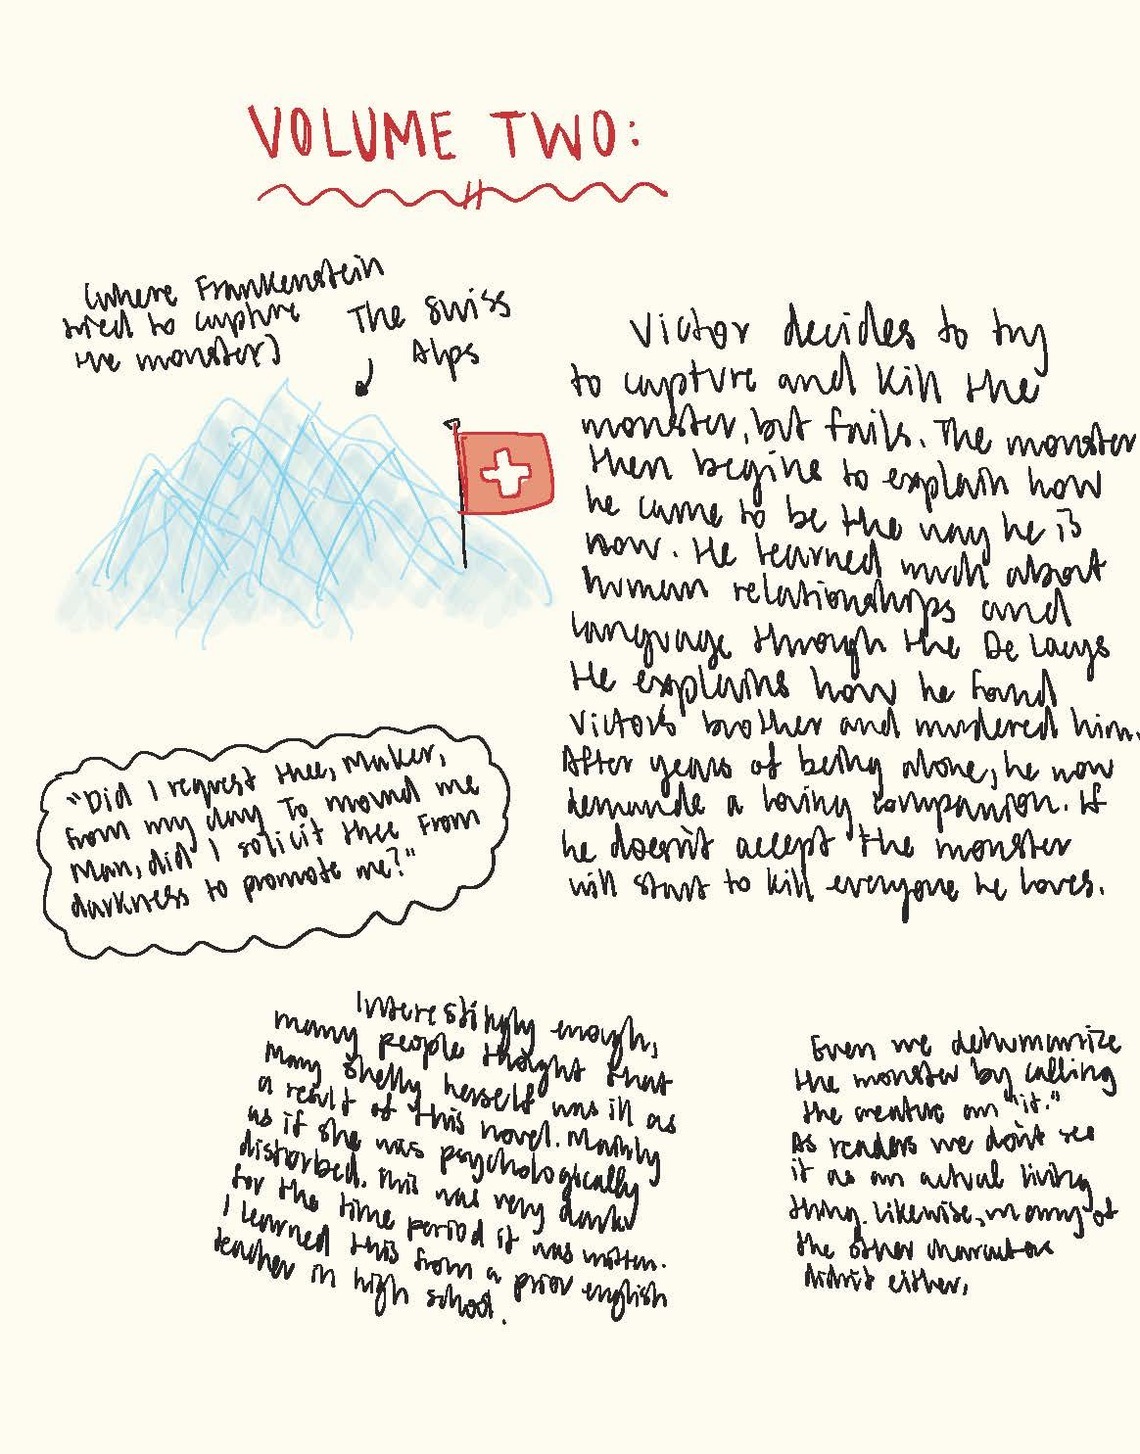 VOLUME TWO:
(where Frankenstein
tried to capture
the monster)
The Swiss
Alps
Victor decides to try
to capture and kill the
monster, but fails. The monster
then begins to explain how
he came to be the way he is
now. He learned much about
human relationships and
language through the De Lacys
He explains how he found
Victor's brother and murdered him.
After years of being alone, he now
demands a loving companion. If
he doesn't accept the monster
will start to kill everyone he loves.
"Did I request thee, Maker,
from my clay To mould me
Man, did I solicit thee From
darkness to promote me?"
Interestingly enough,
many people thought that
Mary Shelly herself was ill as
a result of this novel. Mainly
as if she was psychologically
distorbed. This was very dark
for the time period it was written.
I learned this from a prior english
teacher in high school.
Even we dehumanize
the monster by calling
the creature an "it."
As readers we don't see
it as an actual living
thing. Likewise, many of
the other characters
didn't either,